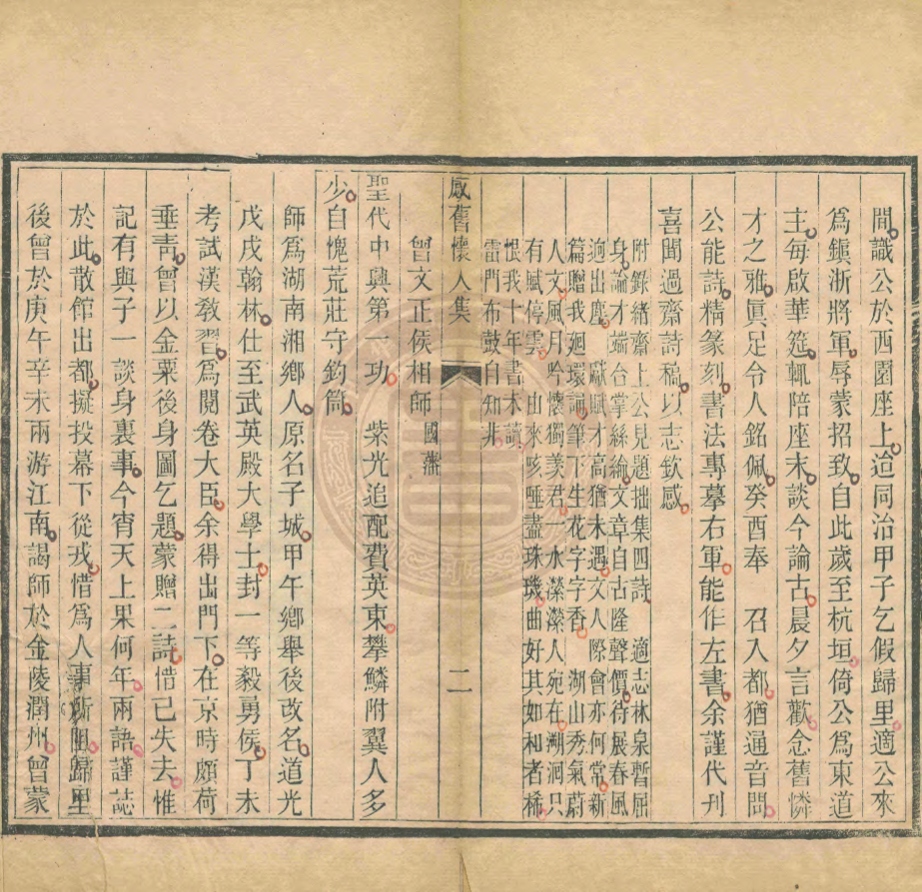 間識公於西園座上迨同治甲子乞假歸里適公來
爲鎭浙將軍辱蒙招致自此歲至杭垣倚公爲東道
主每啟華筵輒陪座末談今論古晨夕言歡念舊憐
才之雅眞足令人銘佩癸酉奉 召入都猶通音問
公能詩精篆刻書法專摹右軍能作左書余謹代刋
喜聞過齋詩稿以志欽感
附錄緒齋上公見題拙集四詩 適志林泉暫屈
身論才端合掌絲綸文章自古隆聲價待展春風
逈出塵 獻賦才高猶未遇文人際會亦何常新
篇贈我廻環誦筆下生花字字香 湖山秀氣蔚
人文風月吟懷獨羨君一水瀠瀠人宛在溯洄只
有賦停雲 由來咳唾盡珠璣曲好其如和者稀
恨我十年書未讀
雷門布鼓自知非
感舊懷人集
二
曾文正侯相師國藩
聖代中興第一功 紫光追配費英東攀鱗附翼人多
少自愧荒莊守釣筒
師爲湖南湘鄉人原名子城甲午鄉舉後改名道光
戊戌翰林仕至武英殿大學士封一等毅勇侯丁未
考試漢敎習爲閱卷大臣余得出門下在京時頗荷
垂靑曾以金粟後身圖乞題蒙贈二詩惜已失去惟
記有與子一談身裏事今宵天上果何年兩語謹誌
於此散館出都擬投幕下從戎惜爲人事所阻歸里
後曾於庚午辛未兩游江南謁師於金陵潤州曾蒙